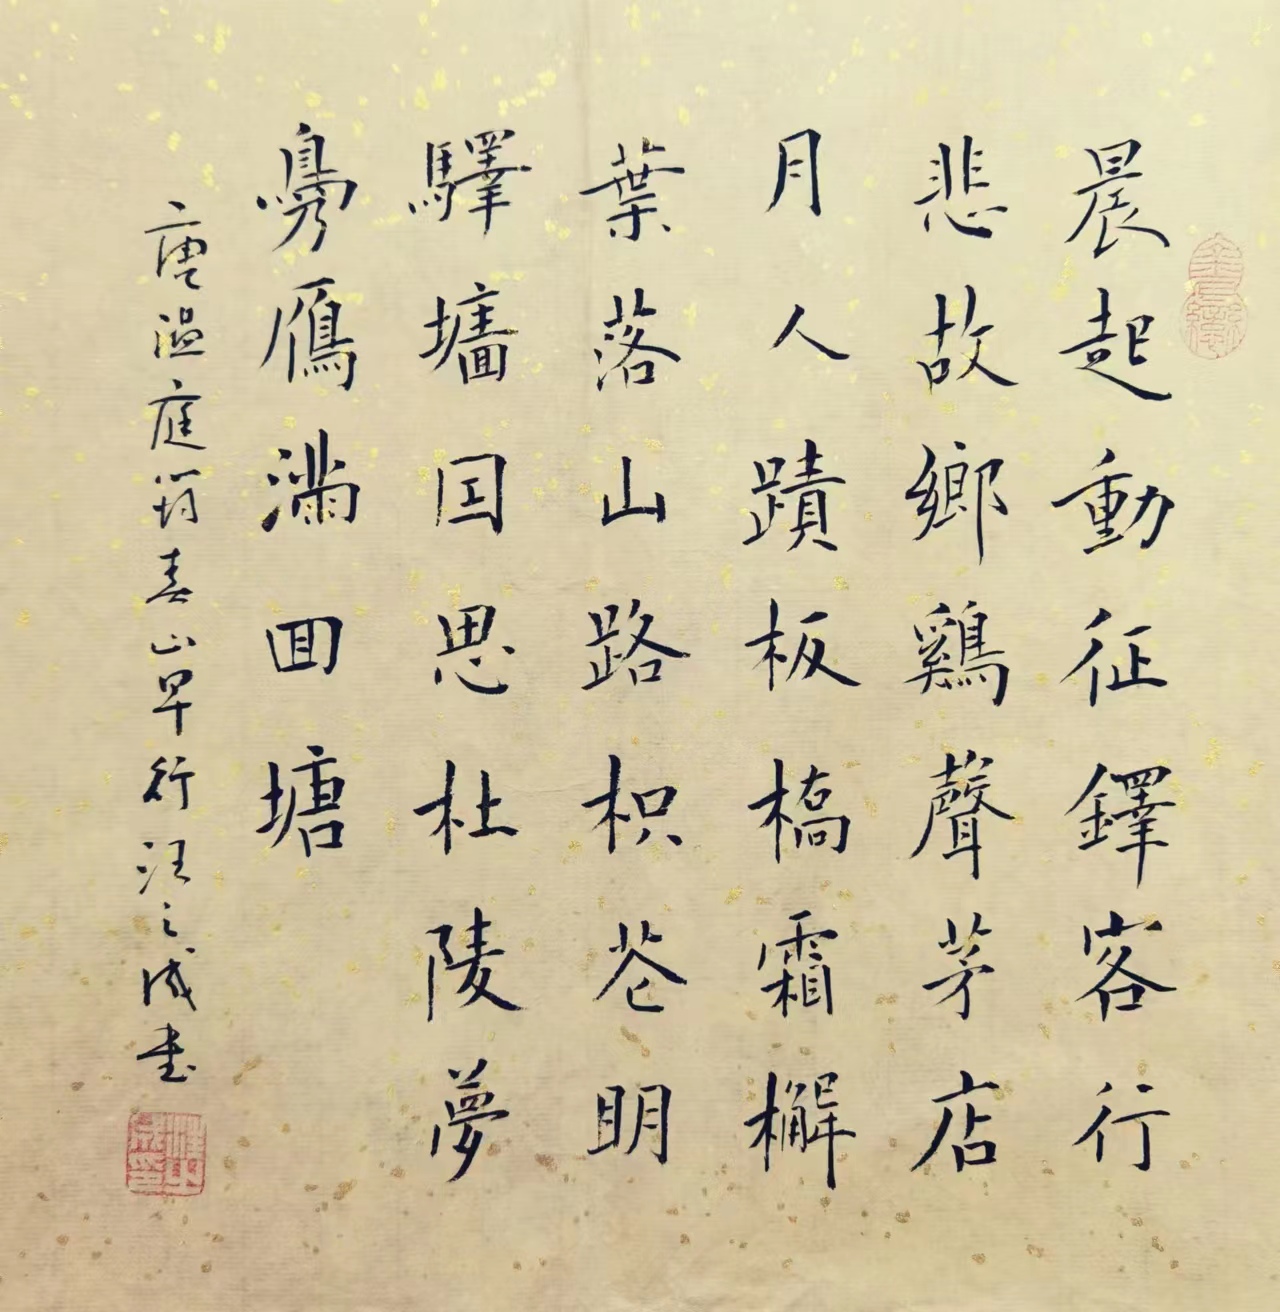 晨起動征鐸客行
悲故鄉鷄聲茅店
月人蹟板橋霜檞
葉落山路枳花明
驛墻因思杜陵夢
鳧鴈滿囬塘
唐温庭筠春山早行汪之成书